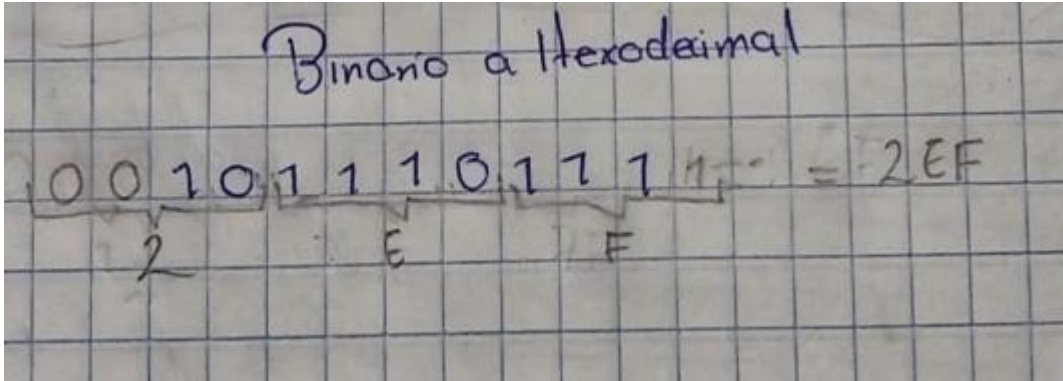 Binario a Hexodecimal
0 0 1 0 1 1 1 0 1 1 1 1 = 2EF
2 E F